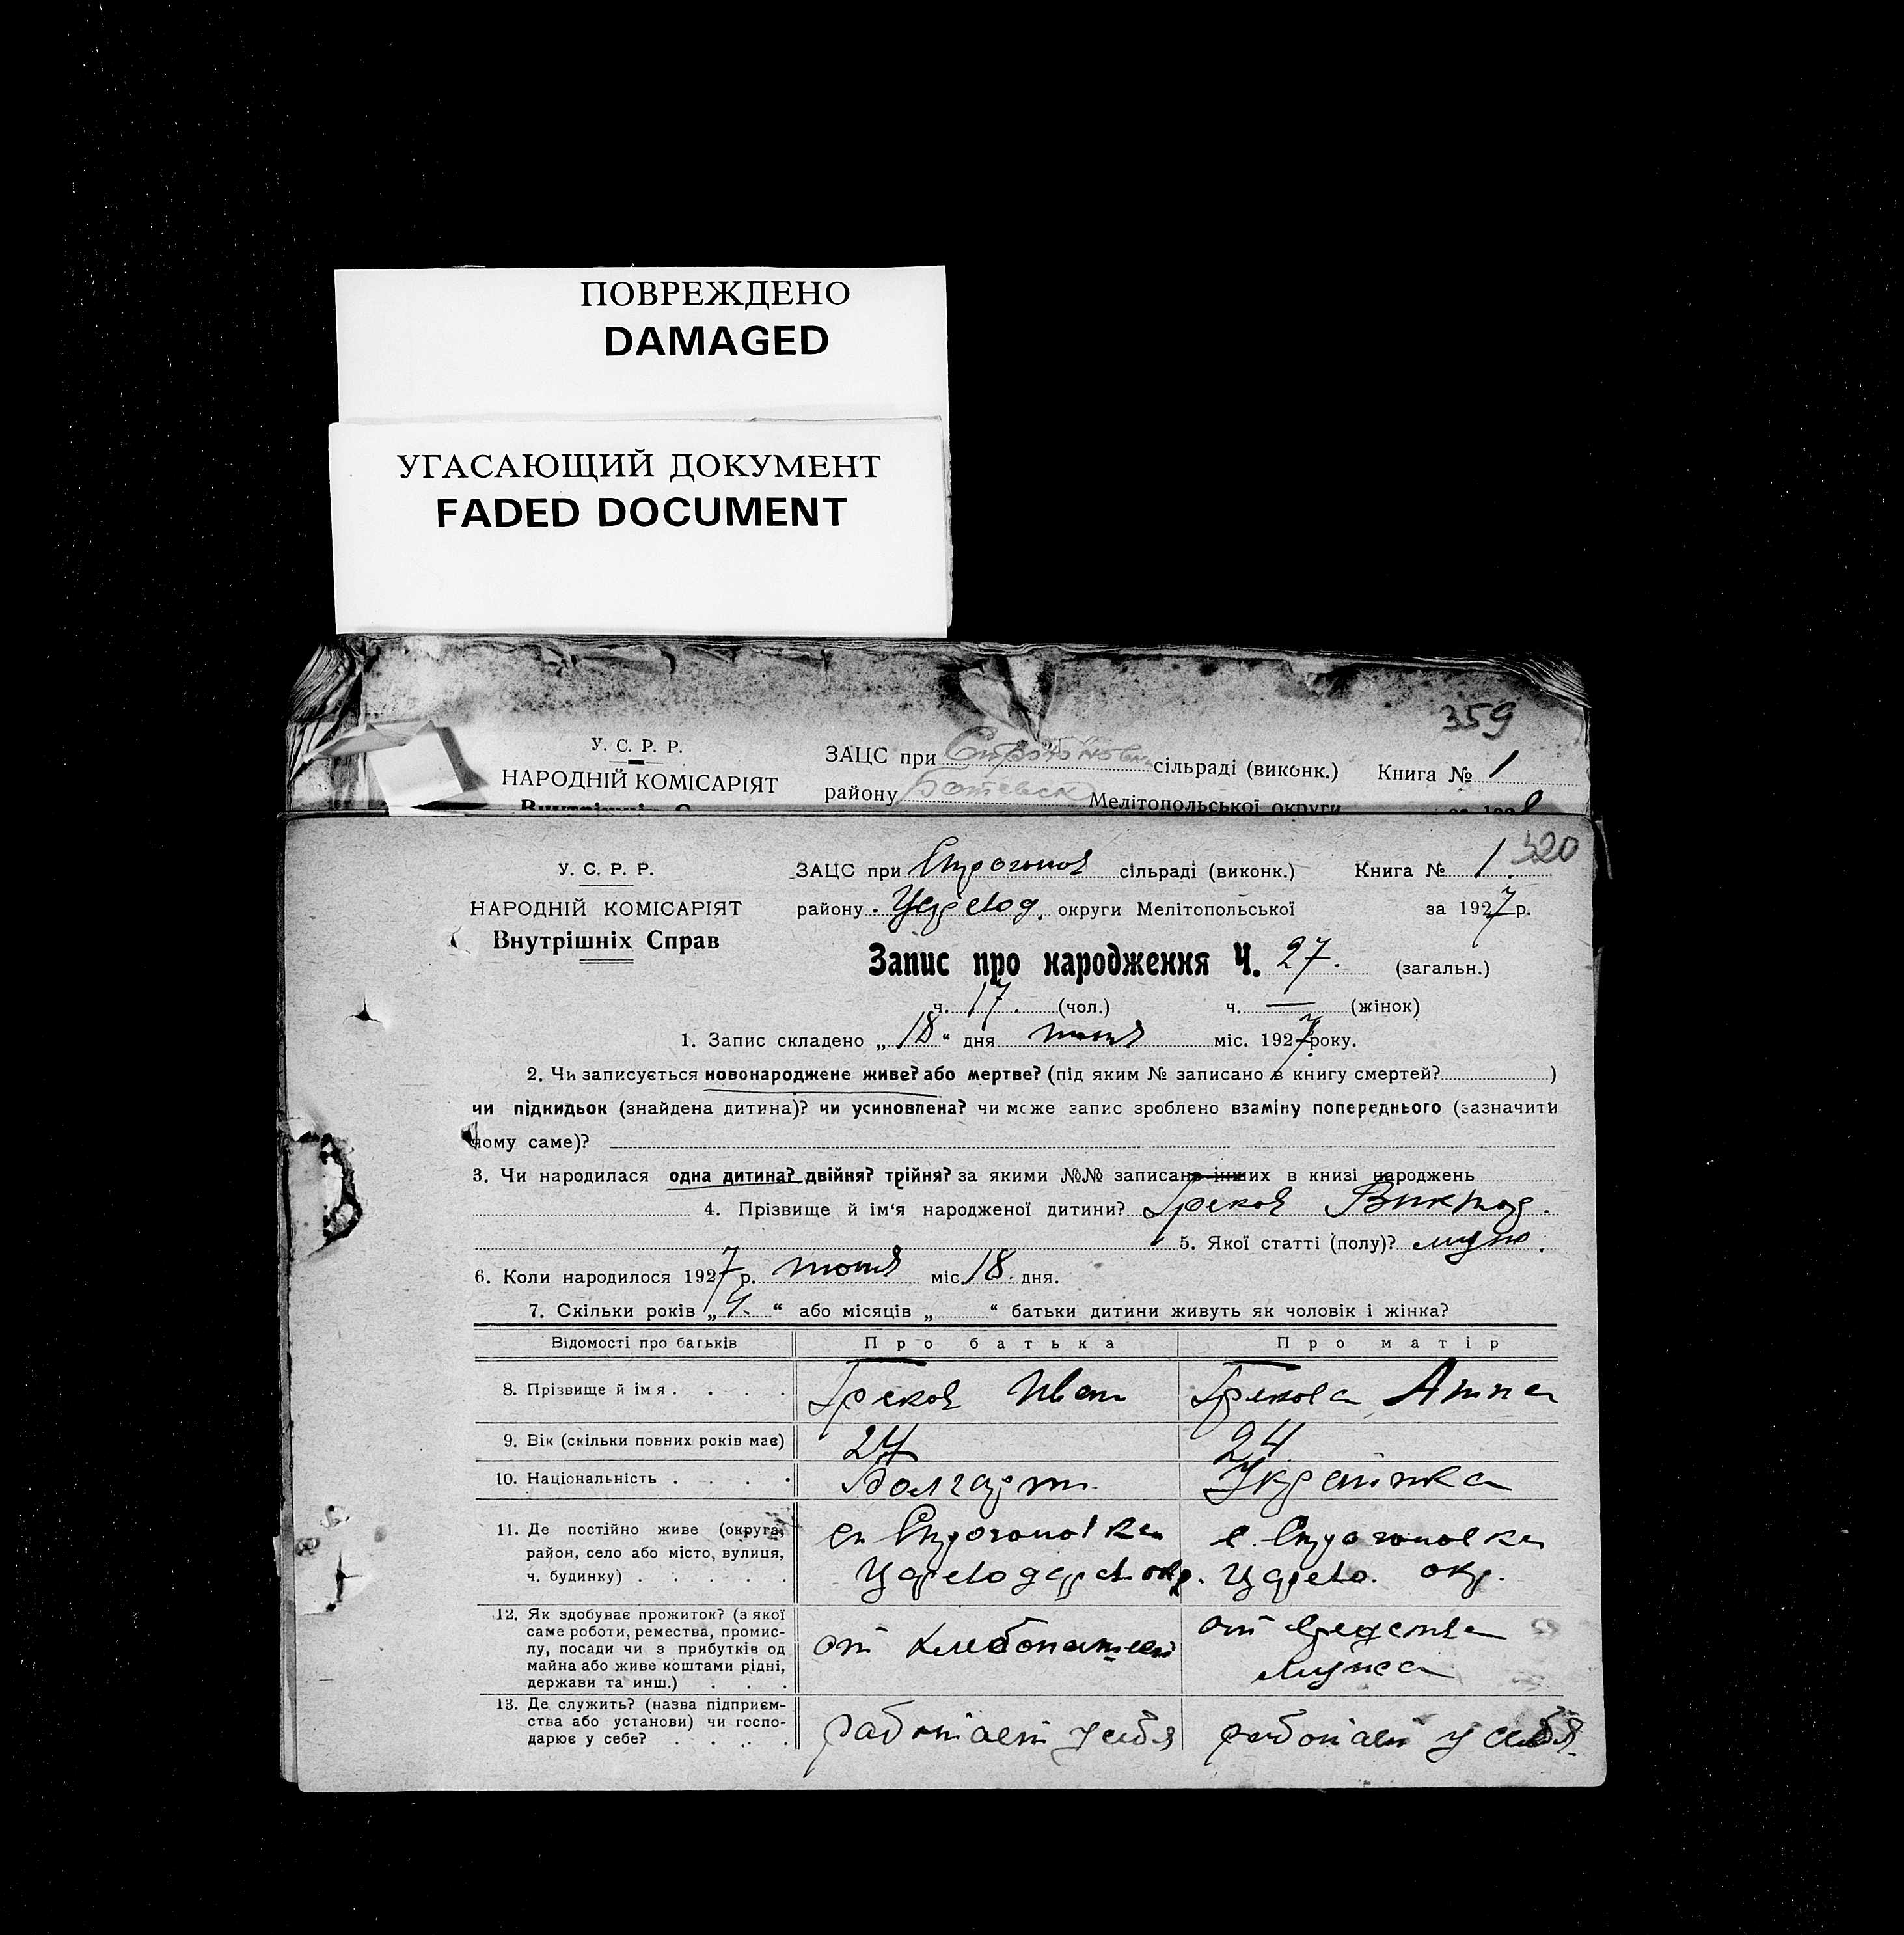 ПОВРЕЖДЕНО
DAMAGED
УГАСАЮЩИЙ ДОКУМЕНТ
FADED DOCUMENT
359
У. С. Р. Р.
ЗАЦС при сільраді (виконк.) Книга № 1
НАРОДНІЙ КОМІСАРІЯТ
району Ботевск Мелітопольської округи
320
У. С. Р. Р.
ЗАЦС при Строганов сільраді (виконк.) Книга № 1.
НАРОДНІЙ КОМІСАРІЯТ
району Царевод. округи Мелітопольської за 1927 р.
Внутрішніх Справ
Запис про народження Ч. 27. (загальн.)
ч. 17. (чол.) ч. — (жінок)
1. Запис складено „ 18 “ дня міс. 1927 року.
2. Чи записується новонароджене живе? або мертве? (під яким № записано в книгу смертей? )
чи підкидьок (знайдена дитина)? чи усиновлена? чи може запис зроблено взаміну попереднього (зазначити
чому саме)?
3. Чи народилася одна дитина? двійня? трійня? за якими №№ записано інших в книзі народжень
4. Прізвище й ім‘я народженої дитини? Греков Виктор.
5. Якої статті (полу)? муж.
6. Коли народилося 1927 р. міс 18. дня.
7. Скільки років „ 4. “ або місяців „ “ батьки дитини живуть як чоловік і жінка?
Відомості про батьків Про батька Про матір
8. Прізвище й імя . . . . Греков Иван Грекова Анна
9. Вік (скільки повних років має) 27 24
10. Національність . . . . Болгарин Украинка
11. Де постійно живе (округа, с. Строгановка с. Строгановка
район, село або місто, вулиця, Цареводаров окр. Царево. окр.
ч. будинку) . . . . .
12. Як здобуває прожиток? (з якої от средства
саме роботи, ремества, промис-
лу, посади чи з прибутків од от хлебопашен
майна або живе коштами рідні, мужа
держави та инш.) . . .
13. Де служить? (назва підприєм-
ства або установи) чи госпо- работает у себя работает у себя
дарює у себе? . . . .